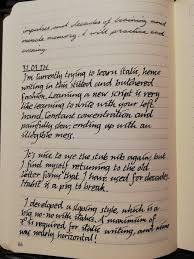 impulses and decades of learning and
muscle memory. I will practice each
evening.
31.03.14
I'm currently trying to learn italic, hence
writing in this stilted and butchered
fashion. Learning a new script is very
like learning to write with your left
hand. Constant concentration, and
painfully slow; ending up with an
illegible mess.
It's nice to use the stub nib again, but
I find myself returning to the old
letter forms that I have used for decades.
Habit is a pig to break.
I developed a sloping style, which is a
big no-no with italics. A maximum of
is required for italic writing, and mine
was nearly horizontal!